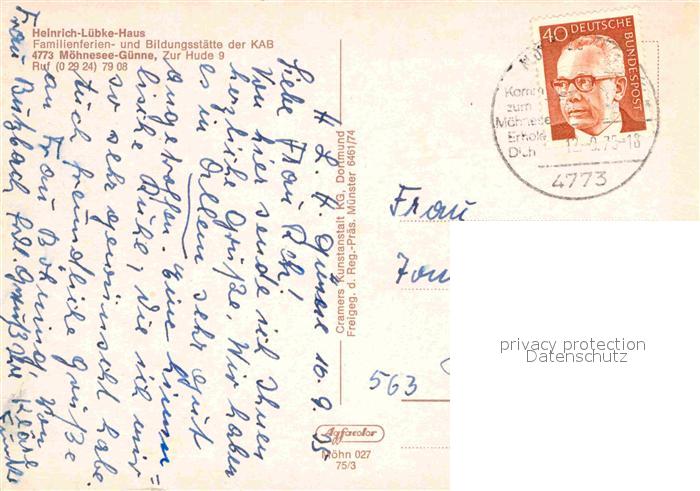 Heinrich-Lübke-Haus
Familienferien- und Bildungsstätte der KAB
4773 Möhnesee-Günne, Zur Hude 9
Ruf (0 29 24) 79 08
H. L. H. Günne 16.9.75
Liebe Frau
Von hier sende ich Ihnen
herzliche Grüße. Wir haben
es in Allem sehr gut
angetroffen. Eine himm=
lische Ruhe, die ich mir
so sehr gewünscht habe.
Auch freundliche Grüße
an Frau Böhning. Von
Frau Butzbach
Cramers Kunstanstalt KG, Dortmund
Freigeg. d. Reg.-Präs. Münster 6461/74
Agfacolor
Möhn 027
75/3
40 DEUTSCHE BUNDESPOST
Komm
zum
Möhnesee
Erhole
Dich
75-18
4773
Frau
563
privacy protection
Datenschutz